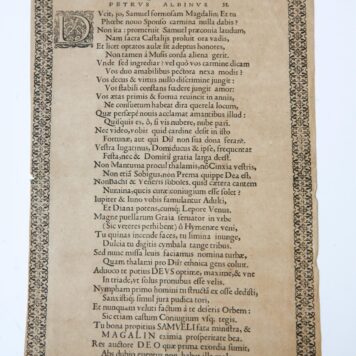 PETRVS ALBINVS
DVcit, jo, Samuel formosam Magdalin: Et tu
Phœbe novo Sponso carmina nulla dabis?
Non ita: promeruit Samuel præconia laudum,
Nam sacra Castalijs proluit ora vadis,
Et licet optatos aulæ sit adeptus honores,
Non tamen à Musis corda aliena gerit.
Vnde sed ingrediar? vel quo vos carmine dicam
Vos duo amabilibus pectora nexa modis?
Vos decus & virtus nullo discrimine jungit:
Vos stabili constans fœdere jungit amor:
Vos ætas primis & forma reuincit in annis,
Ne consuetum habeat dira querela locum,
Quæ persæpè nouis acclamat amantibus illud:
Quisquis es, ô, si vis nubere, nube pari.
Nec video, vobit quid cardine desit in isto
Fortunæ, aut qui Dij non sua dona ferant.
Vestra Iugatinus, Domiducus & ipse, frequentat
Festa, nec & Domitij gratia larga deest.
Non Manturna procul thalamis, nõ Cinxia vestris,
Non etiã Sobigus, non Prema quippe Dea est.
Non Bachi & Veneris soboles, quid cætera cantem
Numina, queis curæ coniugium esse solet?
Iupiter & Iuno vobis famulantur Adulti,
Et Diana potens, cumq́; Lepore Venus.
Magne puellarum Gratia seruator in vrbe
(Sic veteres perhibent) ô Hymenæe veni,
Tu quinas incende faces, tu limina inunge,
Dulcia tu digitis cymbala tange tribus.
Sed nunc missa louis faciamus nomina turbæ,
Quam thalami pro Dijs ethnica gens coluit.
Aduoco te potius DEVS optime, maxime, & vne
In triade, vt solus pronubus esse velis,
Nympham primo homini tu structã ex osse dedisti,
Sanxistiq́; simul jura pudica tori.
Et nunquam veluti factum à te deseris Orbem:
Sic etiam castum Coniugium vsq́; tegis.
Tu bona propitius SAMVELI fata ministra, &
MAGALIN eximia prosperitate bea.
Rex auctore DEO quæ prima exordia sumit,